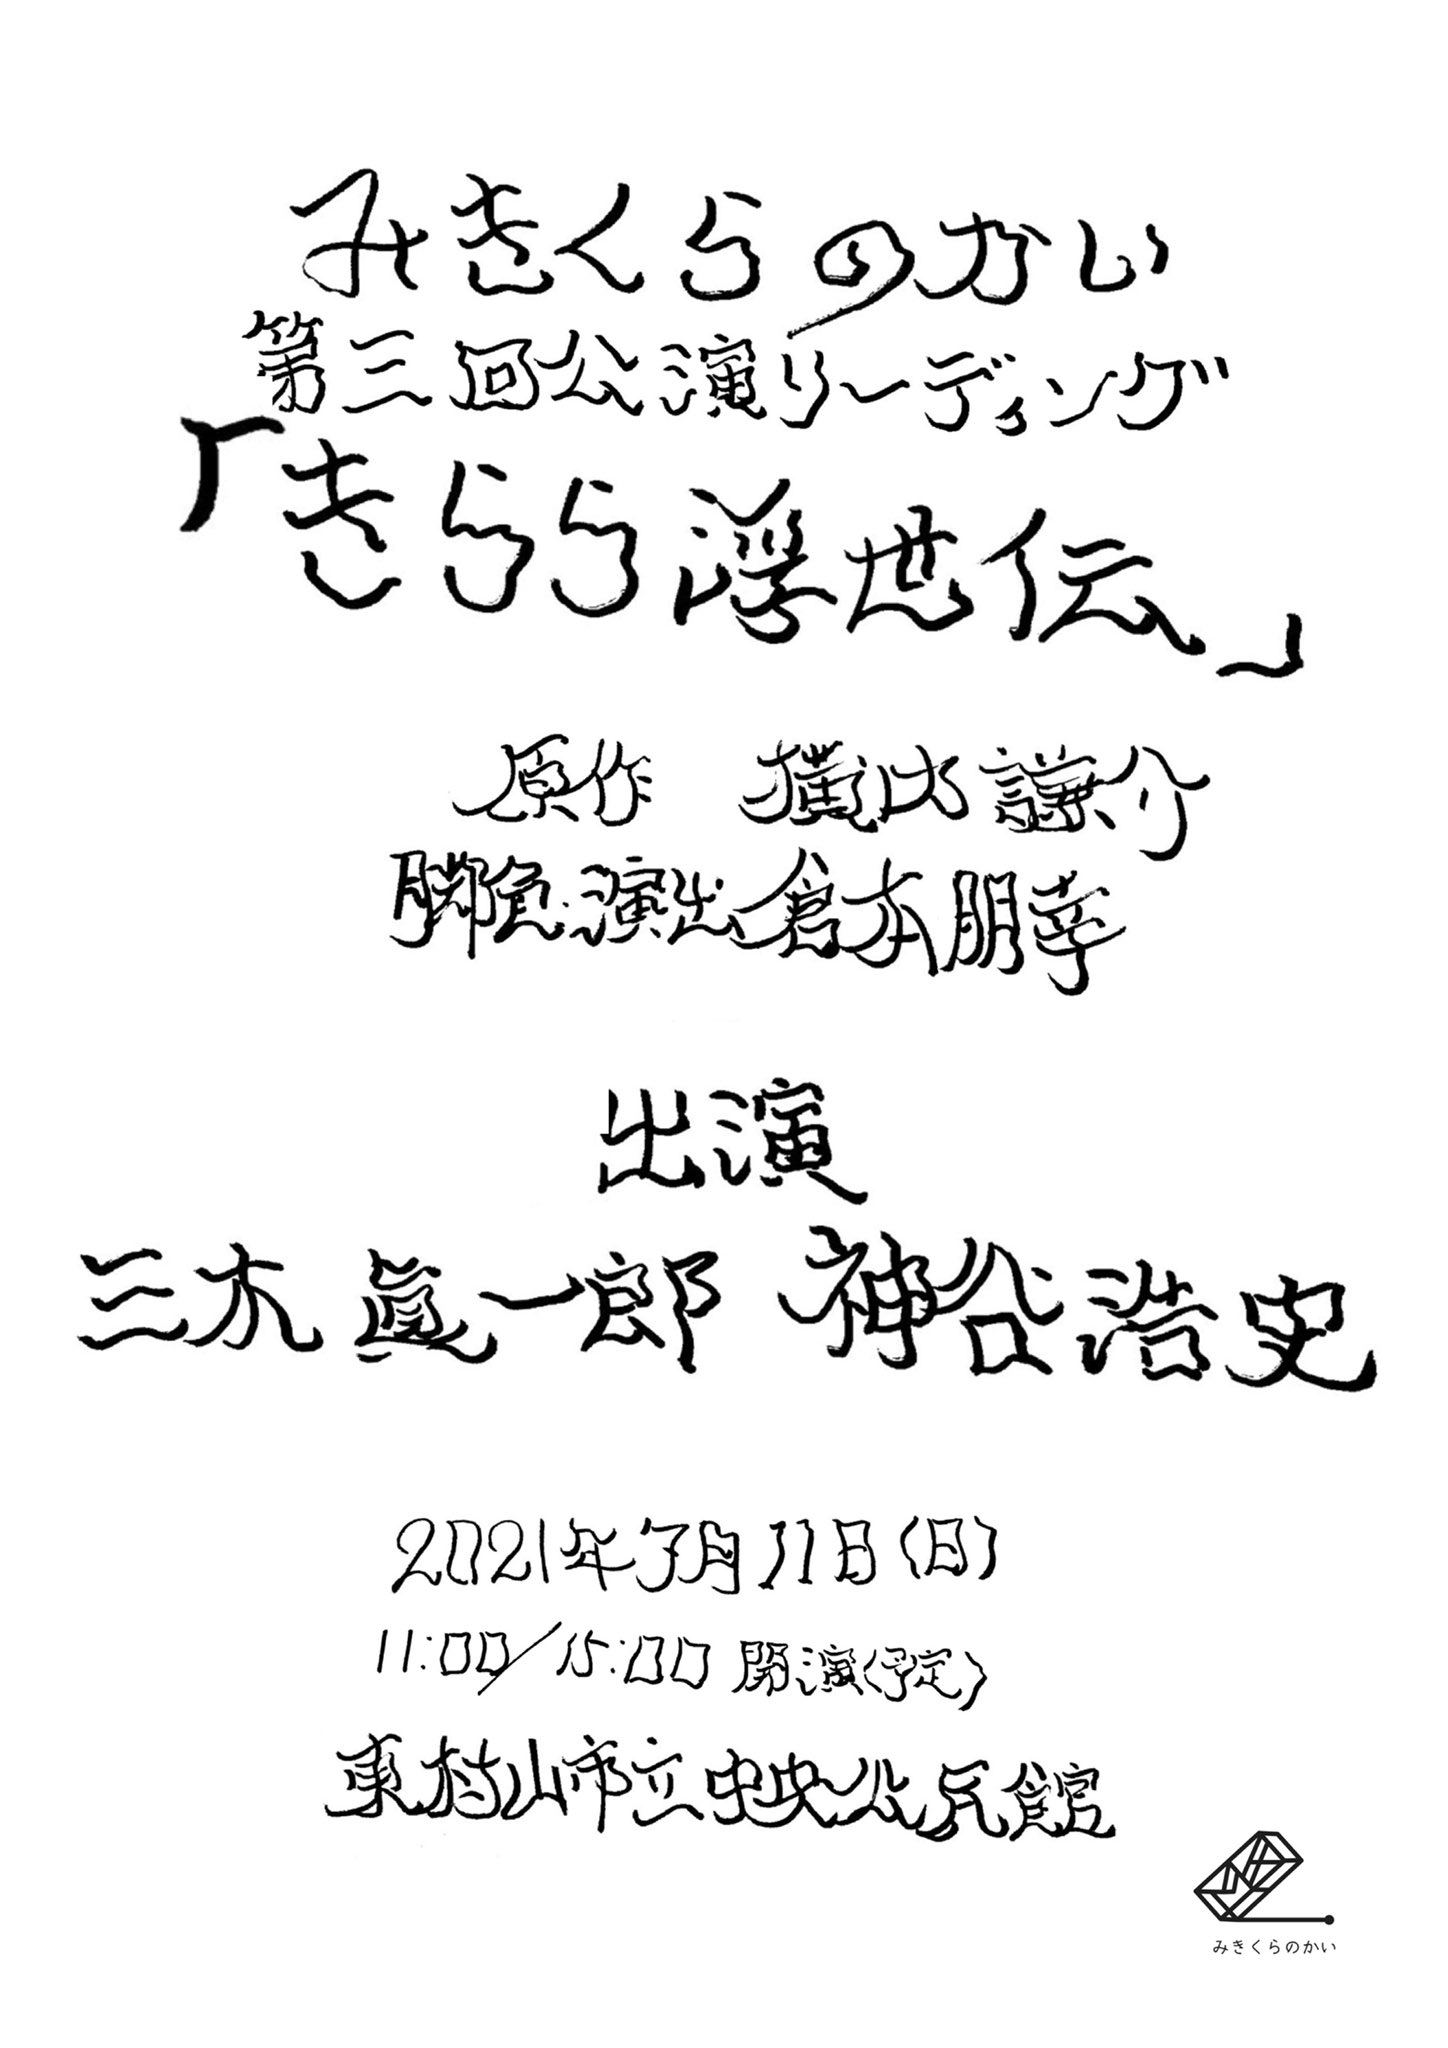 みきくらのかい
第三回公演リーディング
「きらら浮世伝」
原作 横内謙介
脚色・演出 倉本朋幸
出演
三木眞一郎 神谷浩史
2021年7月11日(日)
11:00/15:00 開演(予定)
東村山市立中央公民館
みきくらのかい